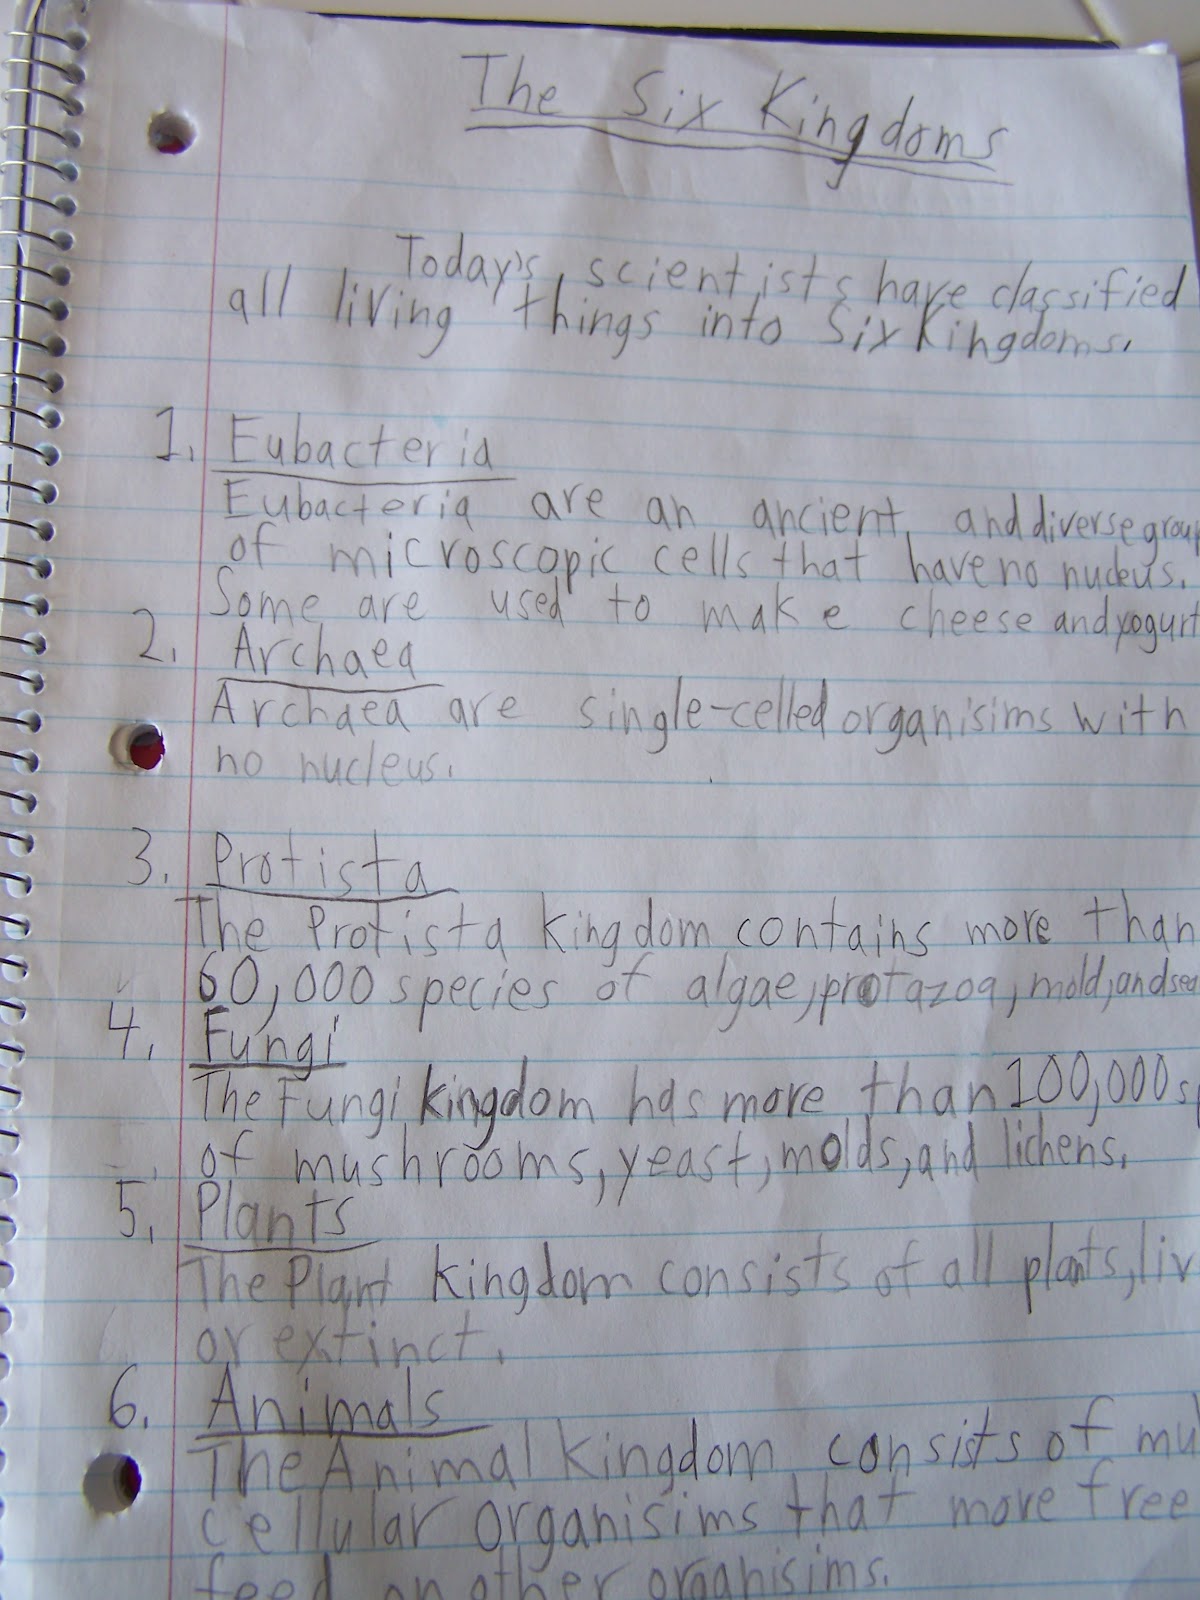 The Six Kingdoms
Today's scientists have classified
all living things into Six Kingdoms.
1. Eubacteria
Eubacteria are an ancient and diverse group
of microscopic cells that have no nucleus.
Some are used to make cheese and yogurt
2. Archaea
Archaea are single-celled organisims with
no nucleus.
3. Protista
The Protista kingdom contains more than
60,000 species of algae, protazoa, mold, and sea
4. Fungi
The Fungi kingdom has more than 100,000 sp
of mushrooms, yeast, molds, and lichens.
5. Plants
The Plant kingdom consists of all plants, liv
or extinct.
6. Animals
The Animal kingdom consists of mul
cellular organisims that more free
feed on other organisims.